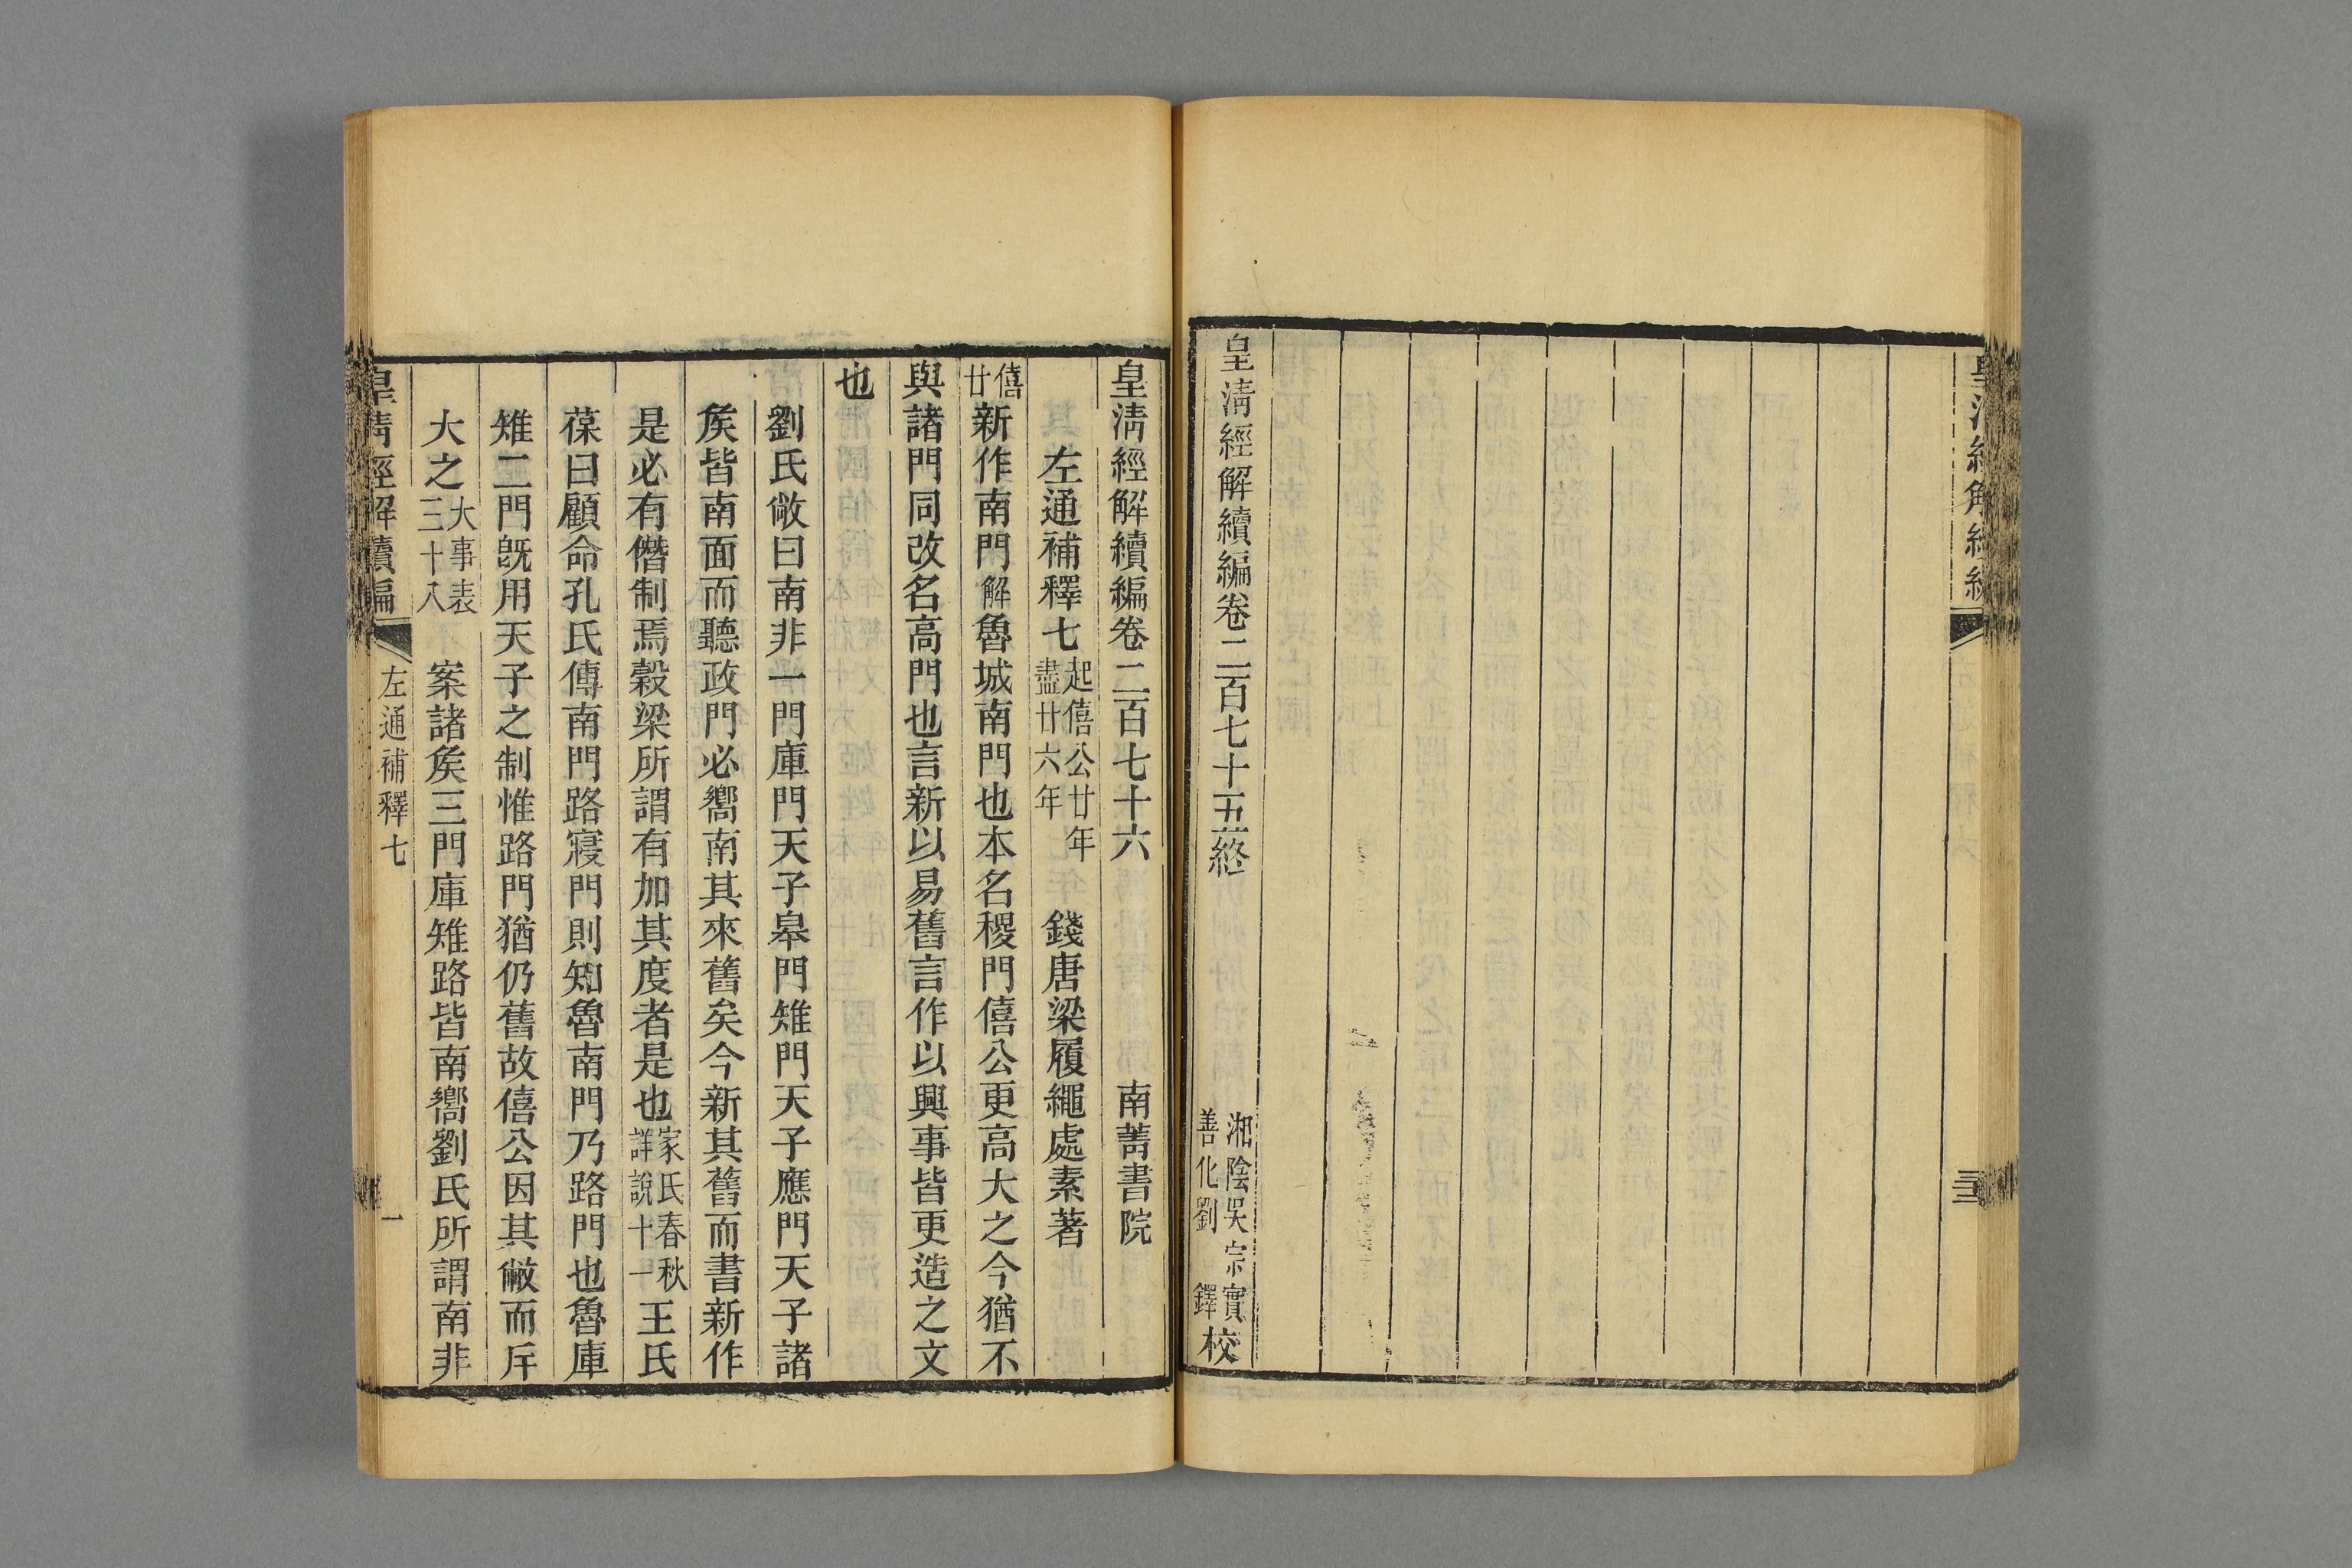 皇清經解續編卷二百七十五終
湘陰吳宗實
善化劉 鐸
校
皇清經解續編卷二百七十六 南菁書院
左通補釋七起僖公廿年盡廿六年 錢唐梁履繩處素著
僖廿新作南門解魯城南門也本名稷門僖公更高大之今猶不
與諸門同改名高門也言新以易舊言作以興事皆更造之文
也
劉氏敞曰南非一門庫門天子皋門雉門天子應門天子諸
矦皆南面而聽政門必嚮南其來舊矣今新其舊而書新作
是必有僭制焉榖梁所謂有加其度者是也家氏春秋詳說十一王氏
葆曰顧命孔氏傳南門路寢門則知魯南門乃路門也魯庫
雉二門旣用天子之制惟路門猶仍舊故僖公因其敝而斥
大之大事表三十八 案諸矦三門庫雉路皆南嚮劉氏所謂南非
皇清經解續編 左通補釋七 一